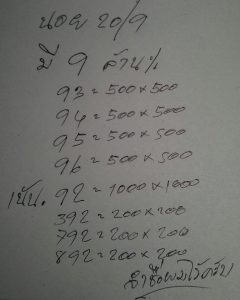 นอย 20/9
มี 9 ล้าน%
93=500×500
94=500×500
95=500×500
96=500×500
เน้น. 92=1000×1000
392=200×200
792=200×200
892=200×200